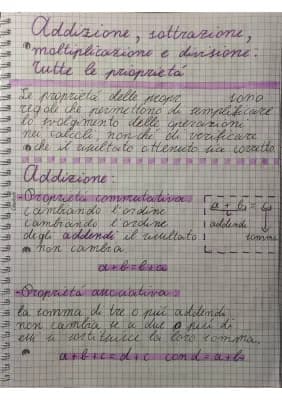 Addizione, sottrazione,
moltiplicazione e divisione:
tutte le proprietà
Le proprietà delle sono
regole che permettono di semplificare
lo svolgimento delle operazioni
nei calcoli, nonché di verificare
che il risultato ottenuto sia corretto
Addizione:
-Proprietà commutativa
cambiando l'ordine
cambiando l'ordine
degli addendi il risultato
non cambia
a+b=b+a
a + b = c
addendi
somma
-Proprietà associativa:
la somma di tre o più addendi
non cambia se a due o più di
essi si sostituisce la loro somma.
a+b+c=d+c con d=a+b